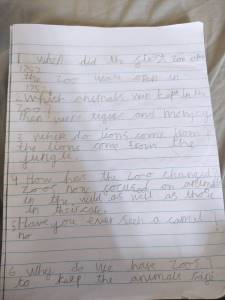 1 when did the first zoo open
1752
the zoo was open in
1752
2 Which animals was kept in the
zoo
then were tigers and monkeys
3 where do lions come from
the lions come from the
jungle
4 How has the zoo changed
zoos now focused on animals
in the wild as well as those
in their care
5 Have you ever seen a camel
no
6 Why do we have zoos
to keep the animals safe